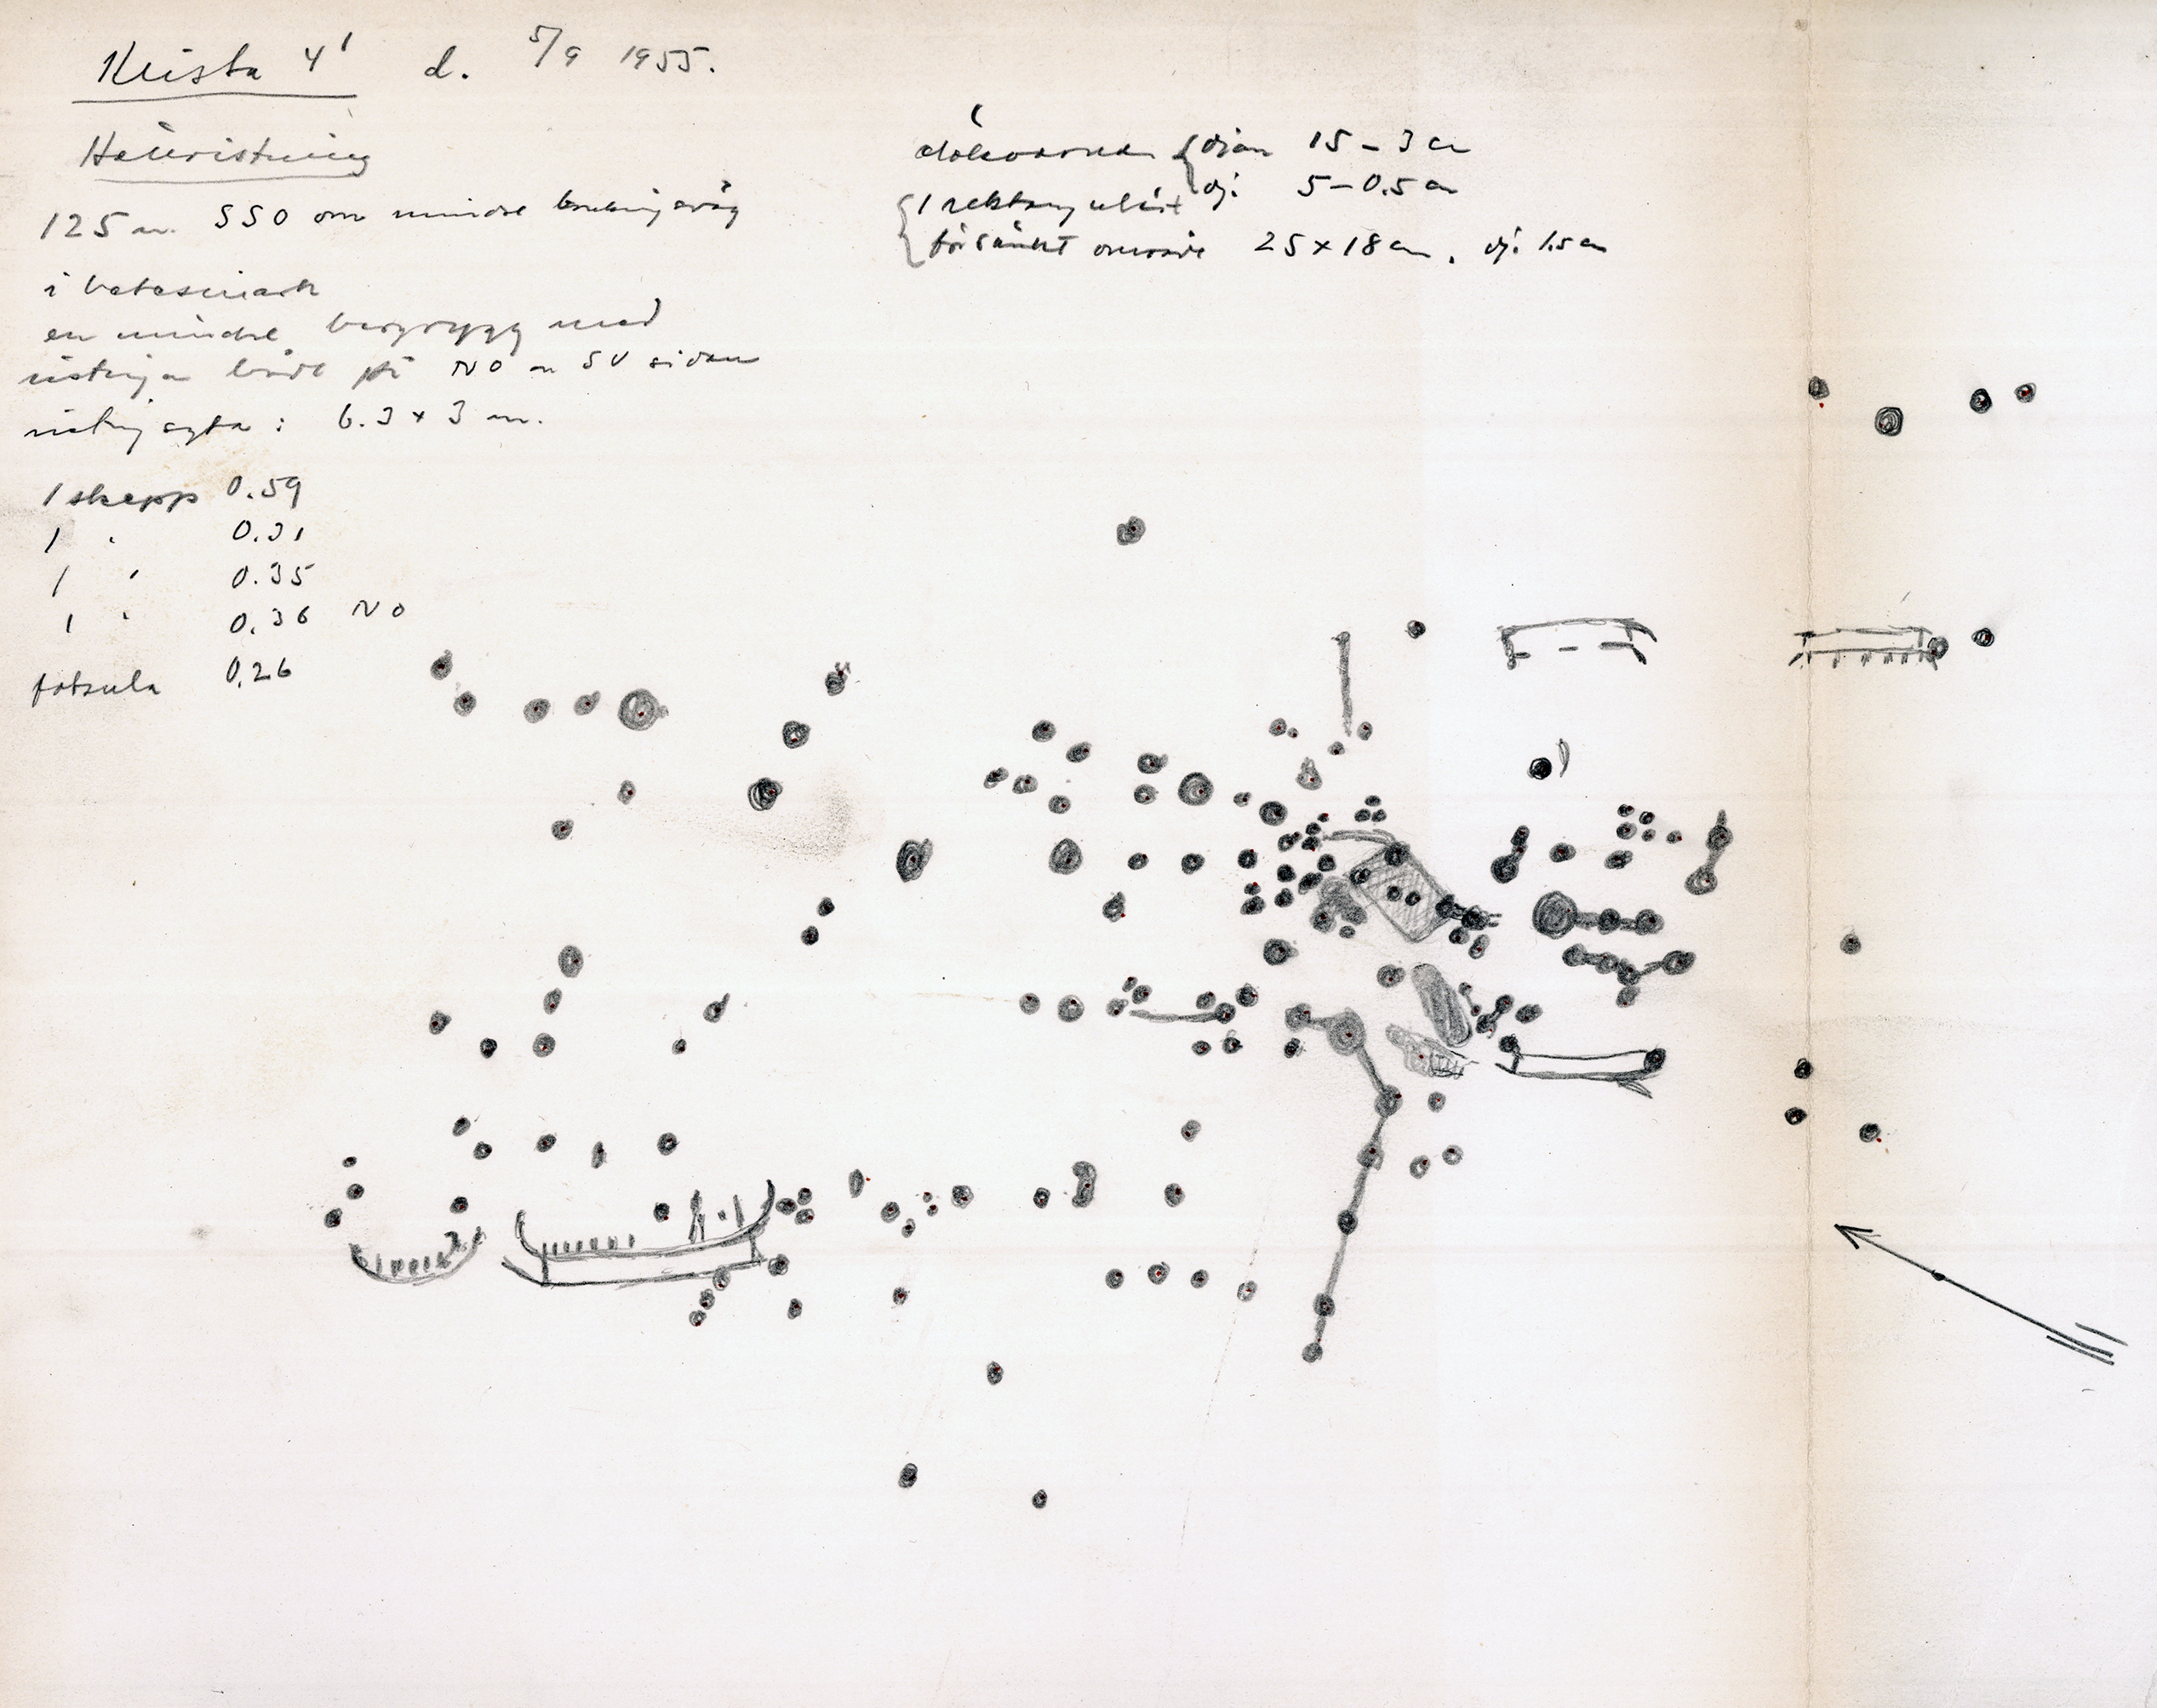 4¹ d. 5/9 1955.
Hällristning
125 m. SSO om mindre
i betesmark
en mindre bergrygg med
både på NO o SV sidan
6.3 × 3 m.
1 skepp 0.59
1 " 0.31
1 " 0.35
1 " 0.36 NO
fotsula 0.26
diam 15 – 3 cm
dj. 5 – 0.5 cm
1 rektangulärt
försänkt område 25 × 18 cm, dj. 1.5 cm